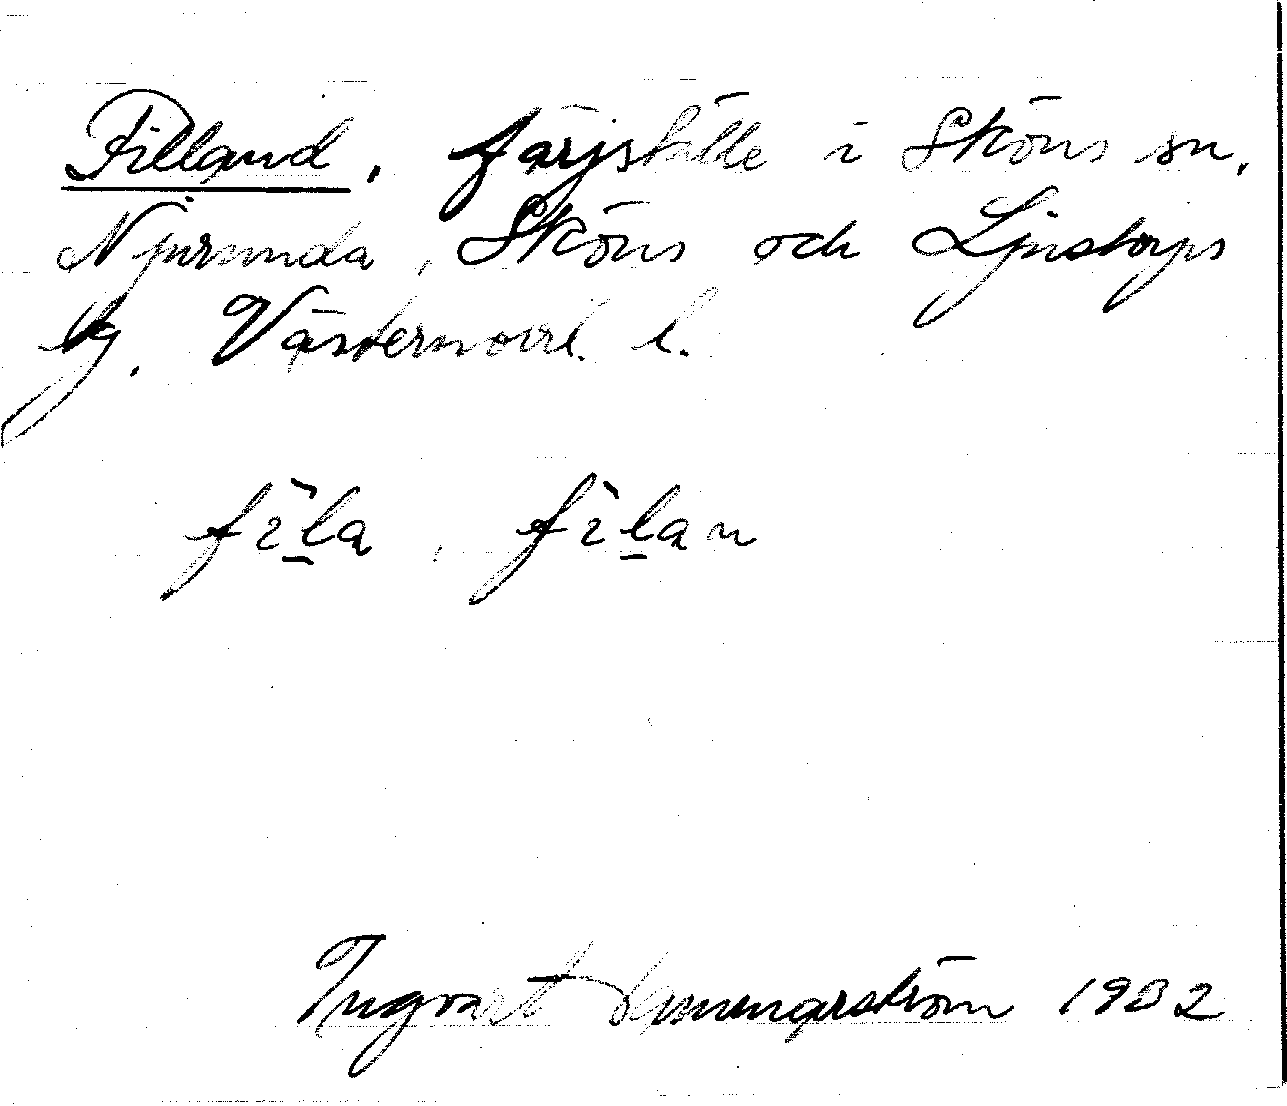 Filland, färjställe i Sköns sn.
Njurunda, Sköns och Ljustorps
tg. Västernorrl. l.
fìla, fìlan
Ingvart 1932